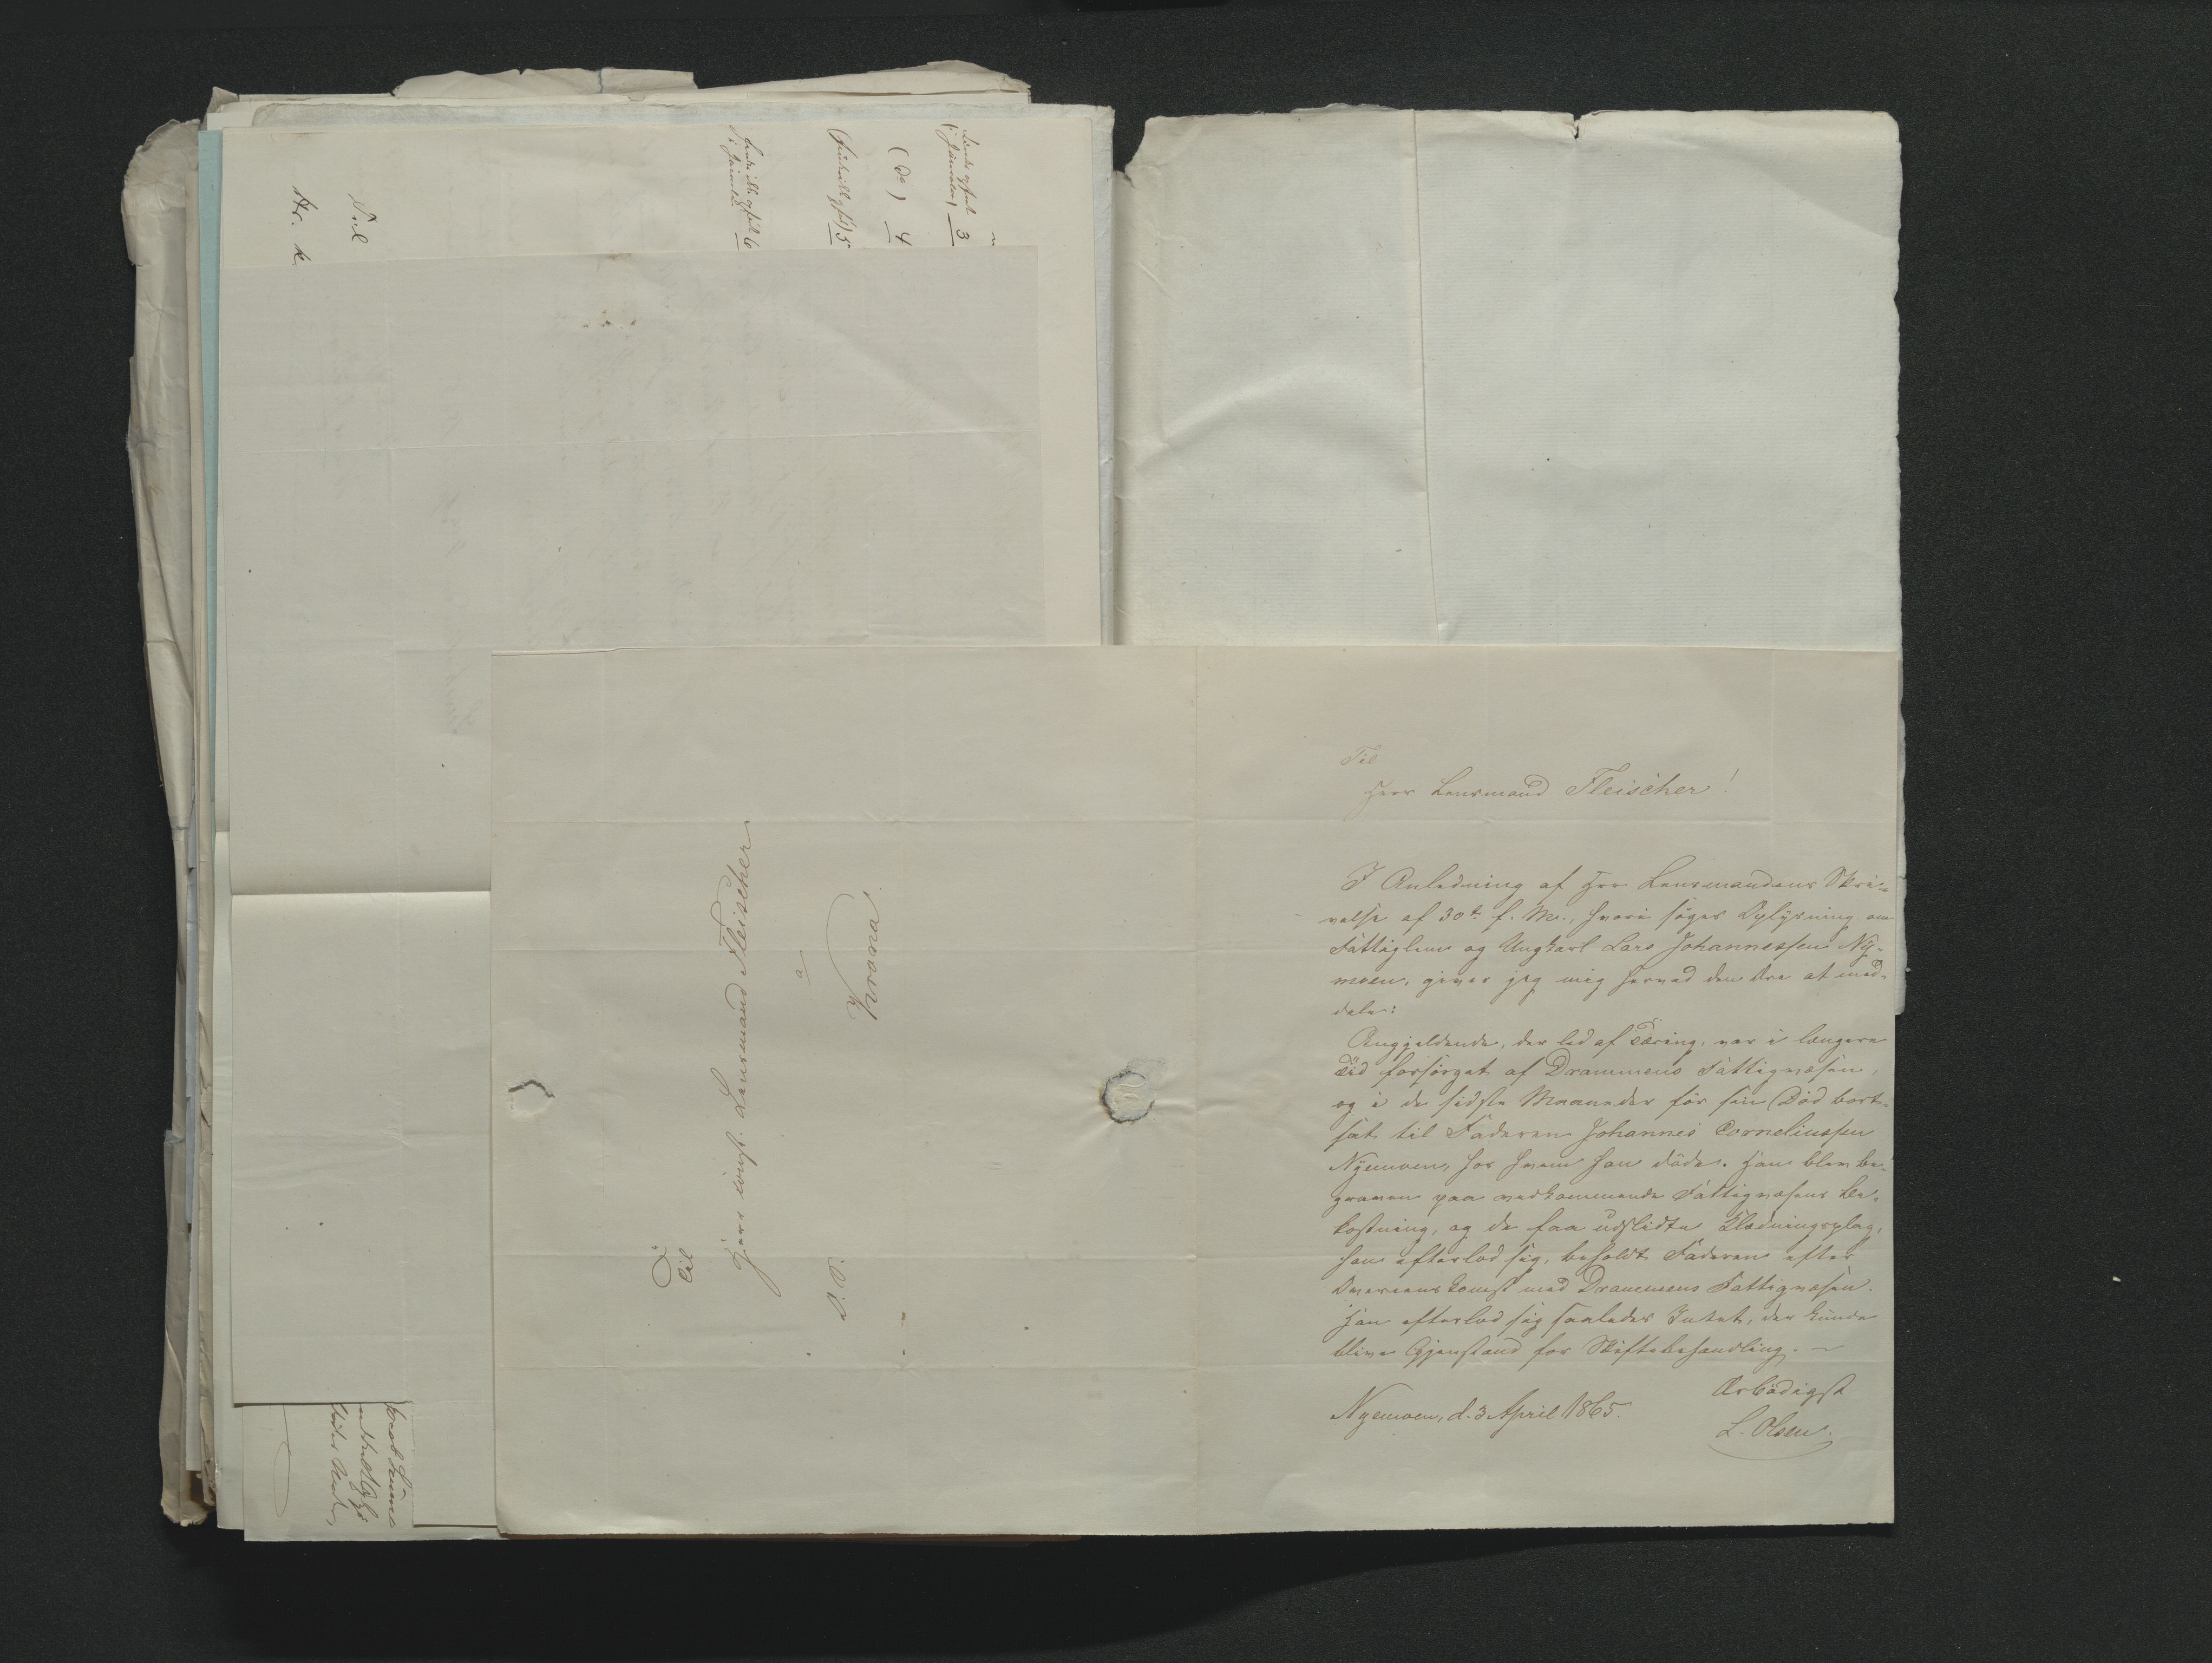 Til
Herr Lensmand Fleischer!
I Anledning af Hrr Lensmandens Skri-
velse af 30te f. M., hvori søges Oplysning om
Fattiglem og Ungkarl Lars Johannessen Ny-
moen, giver jeg mig herved den Ære at med-
dele:
Angjeldende, der led af Tæring, var i længere
Tid forsörget af Drammens Fattigvæsen,
og i de sidste Maaneder för sin Död bort-
sat til Faderen Johannes Corneliussen
Nyemoen, hos hvem han döde. Han blev be-
graven paa vedkommende Fattigvæsens Be-
kostning, og de faa udslidte Klædningsplag,
han efterlod sig, beholdt Faderen efter
Overenskomst med Drammens Fattigvæsen.
Han efterlod sig saaledes Intet, der kunde
blive Gjenstand for Skiftebehandling. –
Nyemoen, d. 3 April 1865.
Ærbödigst
L. Olsen.
Til
Herr const. Lensmand Fleischer
a
Krona
Til
Nr. 2
6
5
(do) 4
3